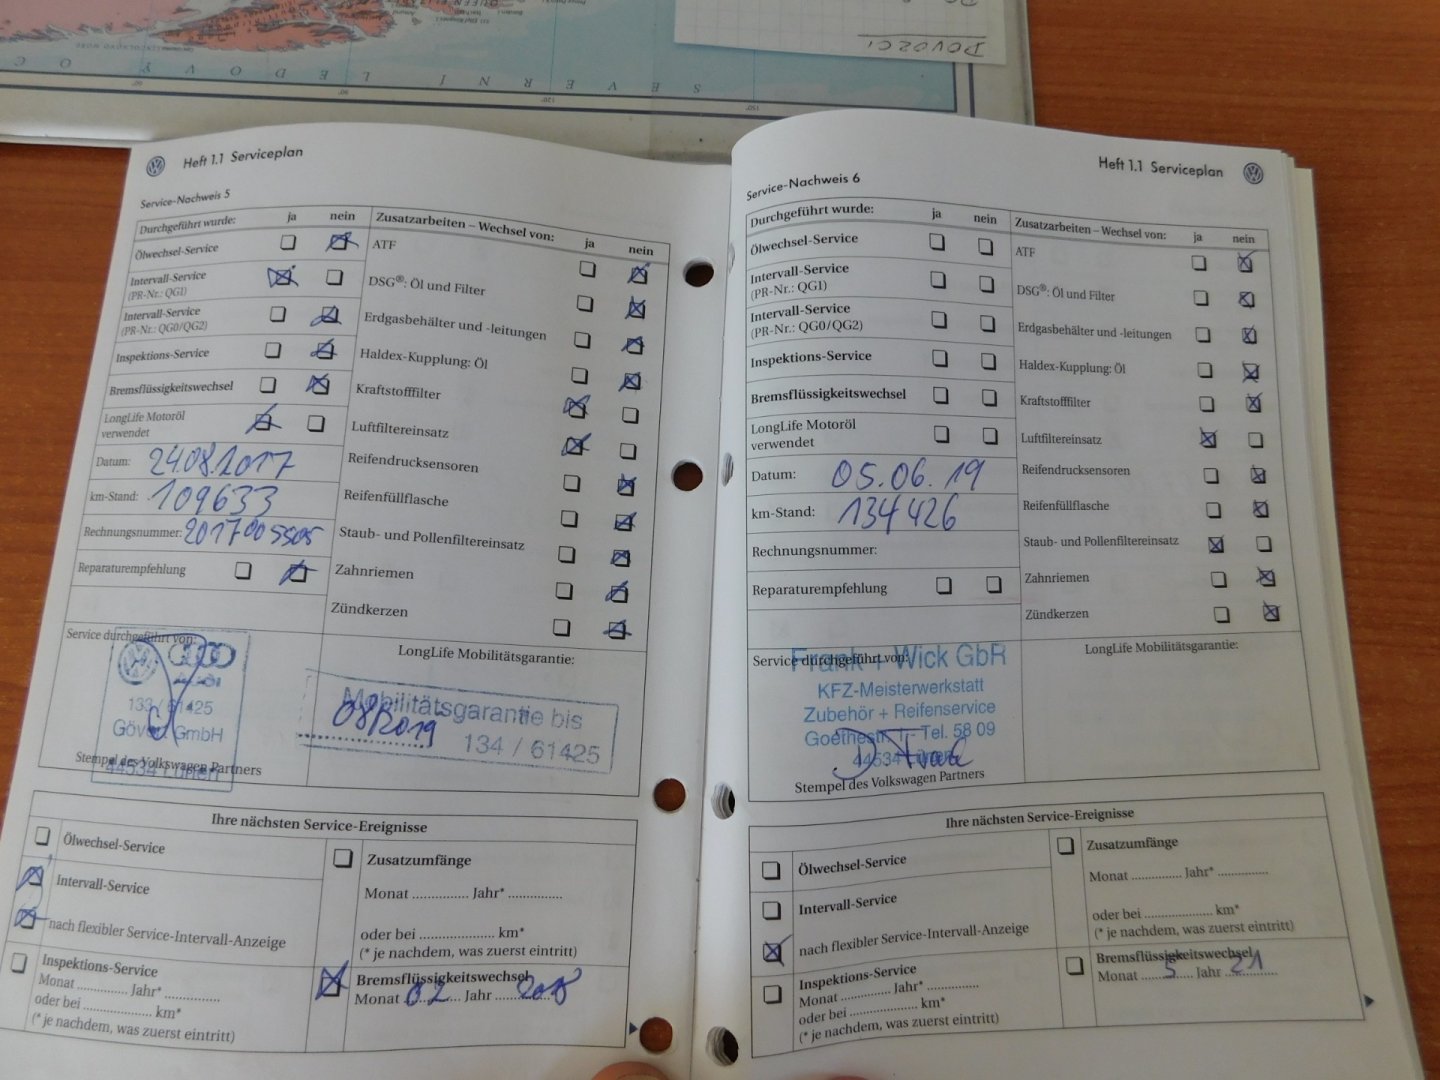 S E V E R N Í L E D O V Ý O C
DOVOZCI
Heft 1.1 Serviceplan
Service-Nachweis 5
Durchgeführt wurde: ja nein
Ölwechsel-Service
Intervall-Service
(PR-Nr.: QG1)
Intervall-Service
(PR-Nr.: QG0/QG2)
Inspektions-Service
Bremsflüssigkeitswechsel
LongLife Motoröl
verwendet
Datum: 24.08.2017
km-Stand: 109633
Rechnungsnummer: 2017005505
Reparaturempfehlung
Zusatzarbeiten – Wechsel von: ja nein
ATF
DSG®: Öl und Filter
Erdgasbehälter und -leitungen
Haldex-Kupplung: Öl
Kraftstofffilter
Luftfiltereinsatz
Reifendrucksensoren
Reifenfüllflasche
Staub- und Pollenfiltereinsatz
Zahnriemen
Zündkerzen
Service durchgeführt von:
133 / 61425
GmbH
44534 Lünen
Stempel des Volkswagen Partners
LongLife Mobilitätsgarantie:
Mobilitätsgarantie bis
08/2019
134 / 61425
Ihre nächsten Service-Ereignisse
Ölwechsel-Service
Intervall-Service
nach flexibler Service-Intervall-Anzeige
Inspektions-Service
Monat ............ Jahr* .............
oder bei .................... km*
(* je nachdem, was zuerst eintritt)
Zusatzumfänge
Monat ............ Jahr* .............
oder bei .................... km*
(* je nachdem, was zuerst eintritt)
Bremsflüssigkeitswechsel
Monat 02 Jahr 2018
Heft 1.1 Serviceplan
Service-Nachweis 6
Durchgeführt wurde: ja nein
Ölwechsel-Service
Intervall-Service
(PR-Nr.: QG1)
Intervall-Service
(PR-Nr.: QG0/QG2)
Inspektions-Service
Bremsflüssigkeitswechsel
LongLife Motoröl
verwendet
Datum: 05.06.19
km-Stand: 134426
Rechnungsnummer:
Reparaturempfehlung
Zusatzarbeiten – Wechsel von: ja nein
ATF
DSG®: Öl und Filter
Erdgasbehälter und -leitungen
Haldex-Kupplung: Öl
Kraftstofffilter
Luftfiltereinsatz
Reifendrucksensoren
Reifenfüllflasche
Staub- und Pollenfiltereinsatz
Zahnriemen
Zündkerzen
Service durchgeführt von:
Frank + Wick GbR
KFZ-Meisterwerkstatt
Zubehör + Reifenservice
Goethestr. Tel. 58 09
44534 Lünen
Stempel des Volkswagen Partners
LongLife Mobilitätsgarantie:
Ihre nächsten Service-Ereignisse
Ölwechsel-Service
Intervall-Service
nach flexibler Service-Intervall-Anzeige
Inspektions-Service
Monat ............ Jahr* .............
oder bei .................... km*
(* je nachdem, was zuerst eintritt)
Zusatzumfänge
Monat ............ Jahr* .............
oder bei .................... km*
(* je nachdem, was zuerst eintritt)
Bremsflüssigkeitswechsel
Monat 5 Jahr 21